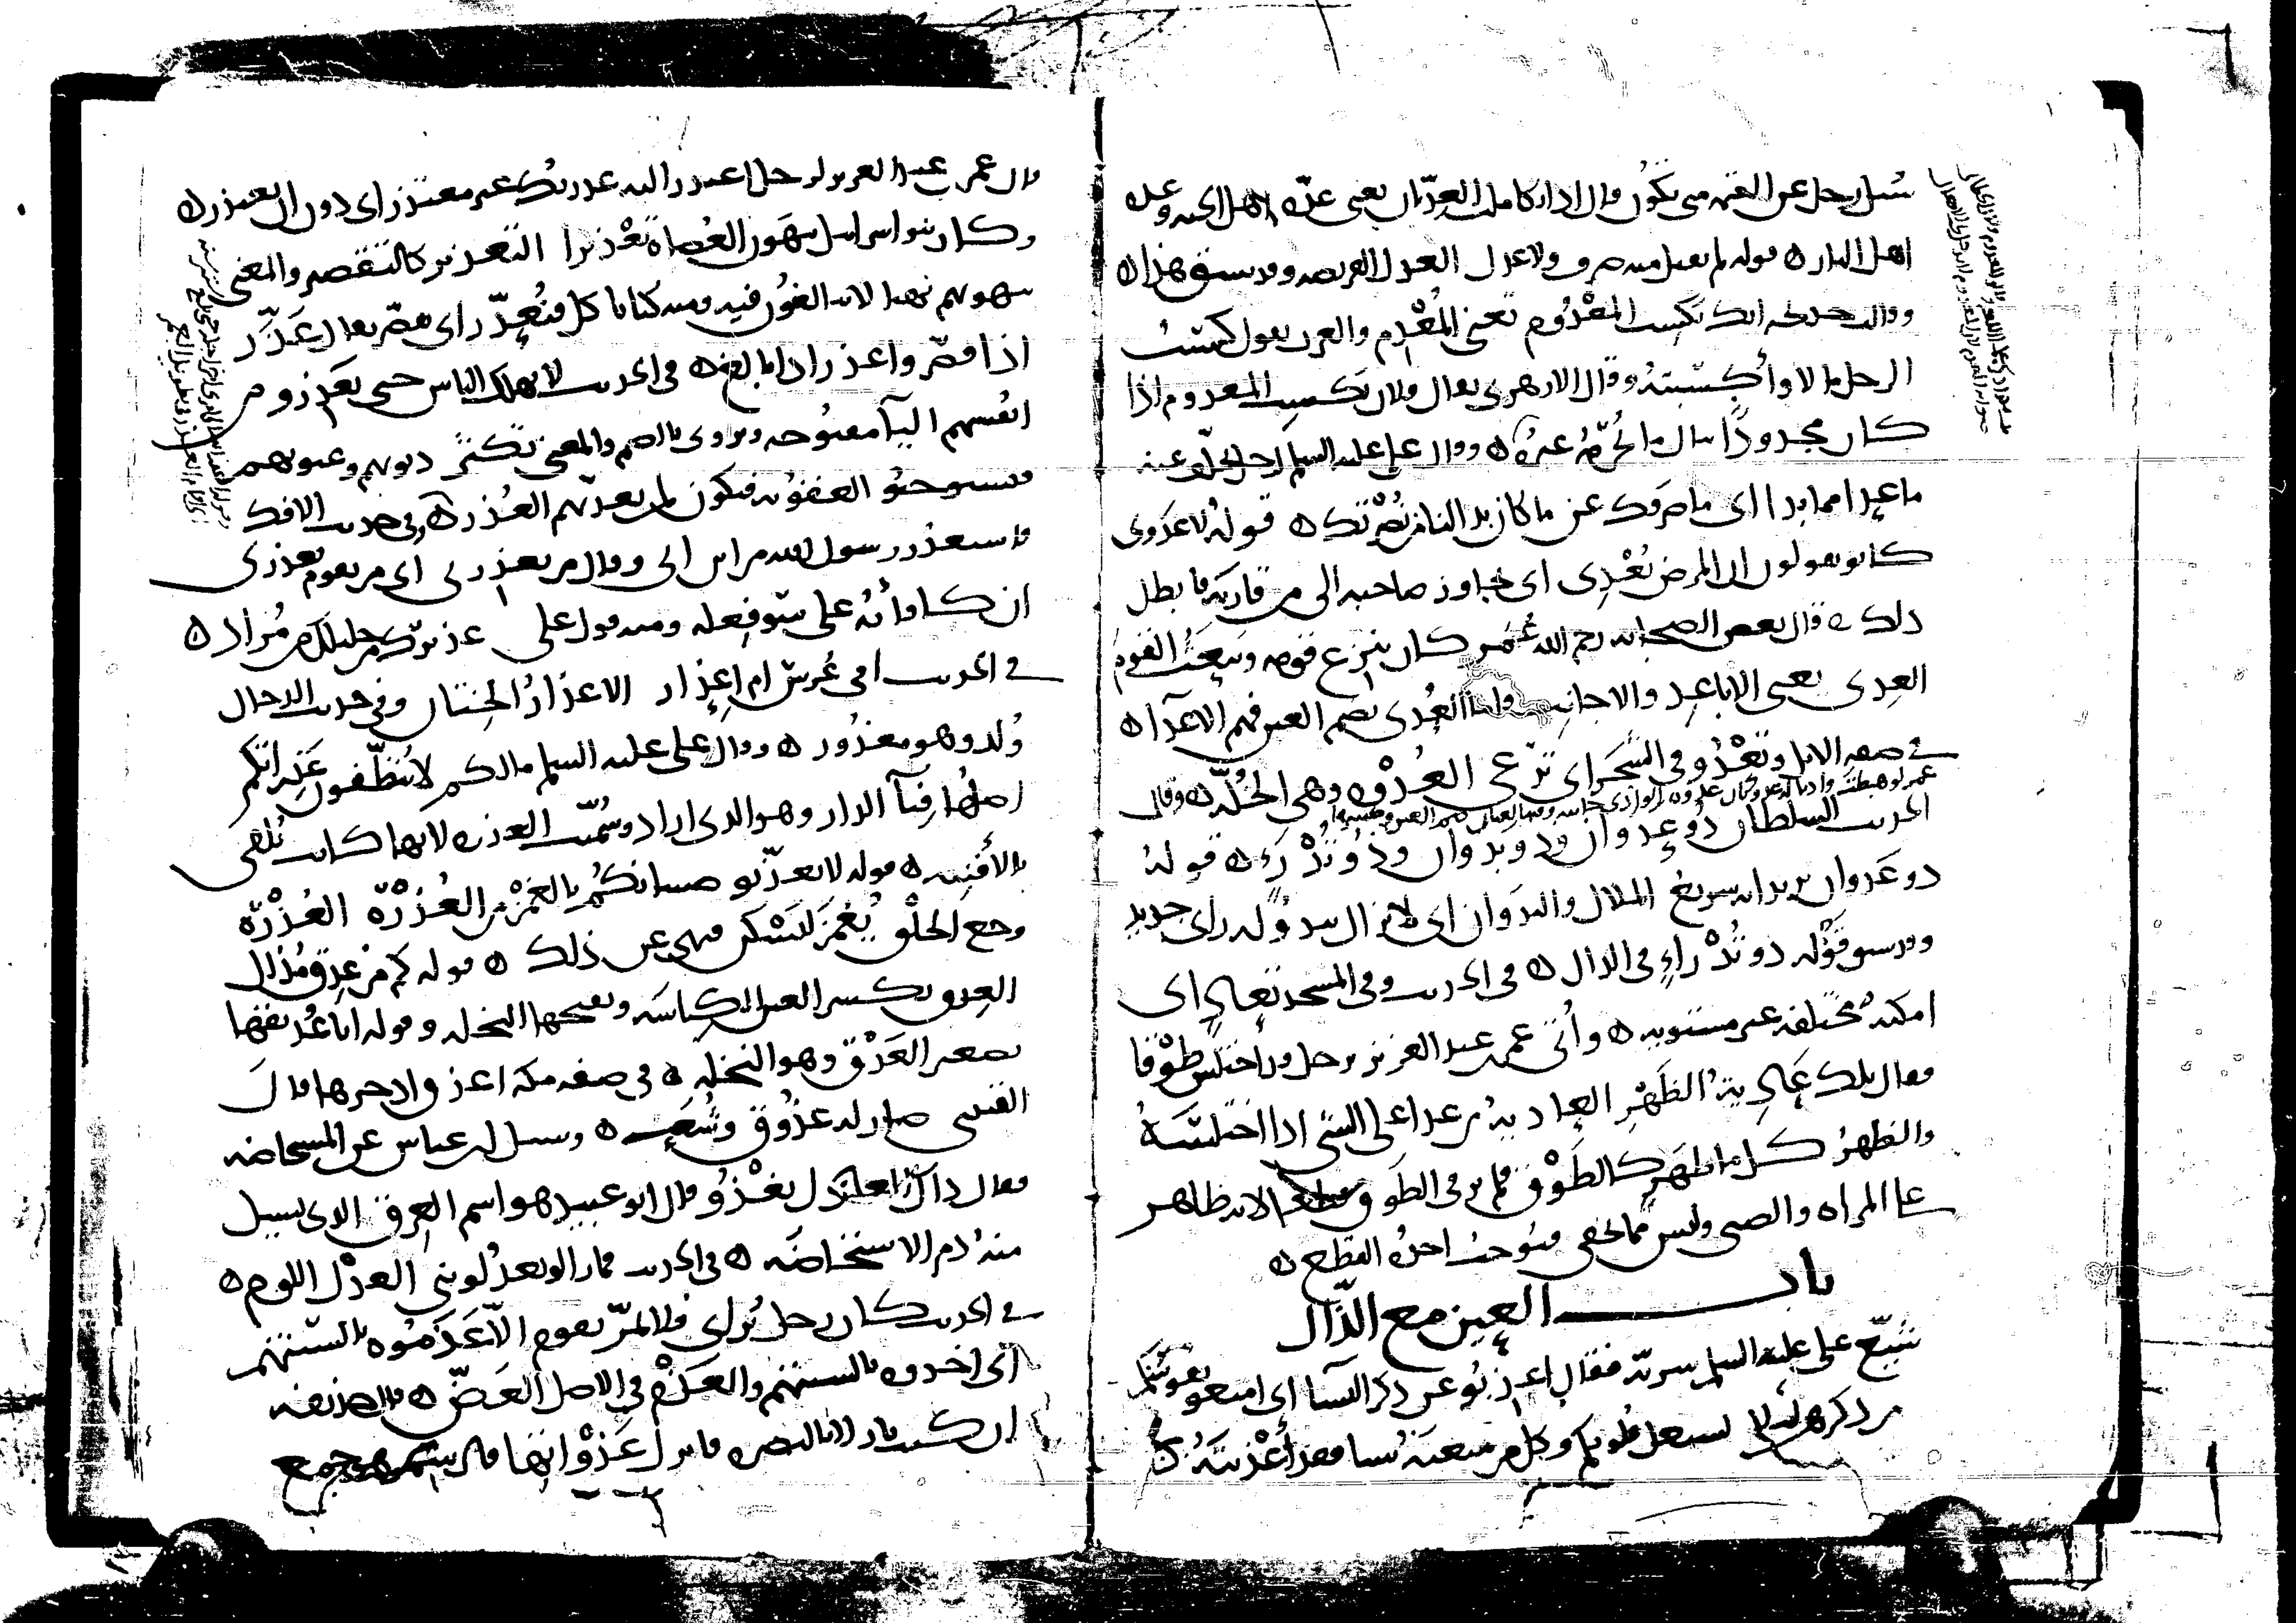 سئل رجل عن القيمه متى تكون قال اذا تكاملت العدتان يعنى عدة اهل الجنه وعده
اهل النار ه قوله لم يقبل منه صرف ولا عدل العدل الفريضه وقد سبق هذا ه
وقالت خديجه انك تكسب المعدوم تعني المعدم والعرب يقول كسبت
الرجل مالا وأكسبته وقال الازهرى يقال فلان يكسب المعدوم اذا
كان مجدودا ينال ما يحرمه غيره ه وقال على عليه السلم لرجل تخلف عنه
ما عدا مما بدا اى ما صرفك عن ما كان بدا لنا من نصرتك ه قوله لا عدوى
كانو يقولون ان المرض يعدى اى يجاوز صاحبه الى من قاربه فابطل
ذلك ه قال بعض الصحابه رحم الله عمر كان ينزع قومه ويبعث القوم
العدى يعنى الاباعد والاجانب واما العدى بضم العين فهم الاعداء ه
في صفه الابل وتغدو فى الشجر اى ترعى العدوه وهى الخلة ه وقال
عمر لو هبطت واديا له عدوتان عدوه الوادى جانبه وفيها لغتان ضم العين وكسرها
الحديث السلطان ذو عدوان وذو بدوان وذو تدراء ه قوله
ذو عدوان يريد انه سريع الملال والبدوان اى لا يزال يبدو له راى جديد
وقد سبق قوله ذو تدراء فى الدال ه فى الحديث وفى المسجد تعاد اى
امكنه مختلفه غير مستويه ه وأتى عمر عبد العزيز برجل قد اختلس طوقا
فقال تلك عادية الظهر العاديه من عدا على الشى اذا اختلسه
والظهر كل ما ظهر كالطوق فلم ير فى الطوق قطعا لانه ظاهر
على المراه والصبى وليس مما يخفى فيوجب اخذه القطع ه
باب العين مع الذال
شيع على عليه السلم سرية فقال اعذبو عن ذكر النسا اى امنعو نفوسكم
من ذكرهن لئلا تشتغل قلوبكم وكل من منعته شيا فقد أعذبته
قال عمر بن عبد العزيز لرجل اعتذر اليه عذرتك غير معتذر اى دون ان تعتذر ه
وكان بنو اسرايل ينهون العصاة تعذيرا التعذير كالتقصير والمعنى
ينهونهم نهيا لا يبالغون فيه ومنه كتابا كل متعذر اى مقصر يقال عذر
اذا قصر واعذر اذا بالغ ه فى الحديث لا يهلك الناس حتى يعذرو من
انفسهم اليا مفتوحه ويروى بالضم والمعنى تكثر ذنوبهم وعيوبهم
فيستوجبو العقوبه فيكون لمن يعذبهم العذر ه وفى حديث الافك
فاستعذر رسول الله من ابن ابى وقال من يعذرنى اى من يقوم بعذرى
ان كافأته على سو فعله ومنه قول على عذيرك من خليلك من مراد ه
فى الحديث افى عرس ام اعذار الاعذار الختان وفى حديث الدجال
ولد وهو معذور ه وقال على عليه السلم مالكم لا تنظفون عذراتكم
اصلها فناء الدار وهو الذى اراد وسميت العذره لانها كانت تلقى
بالأفنيه ه قوله لا تعذبو صبيانكم بالغمز من العذرة العذرة
وجع الحلق يغمز ليسكن فنهى عن ذلك ه قوله كم من عذق مذلل
العذق بكسر العين الكباسه وبفتحها النخله وقوله انا عذيقها
تصغير العذق وهو النخله ه فى صفه مكه اعذق اذخرها قال
القتيبى صار له عذوق وشعب ه وسيل ابن عباس عن المستحاضه
فقال ذاك العاذل يغذو قال ابو عبيد هو اسم العرق الذى يسيل
منه دم الاستحاضه ه فى الحديث فمازالو يعذلوننى العذل اللوم ه
فى الحديث كان رجل يرائى فلا يمر بقوم الا عذموه بالسنتهم
أى اخذوه بالسنتهم والعذم فى الاصل العض ه قال حذيفه
ان كنت نازلا بالبصره فانزل عذواتها قال شمر هى جمع